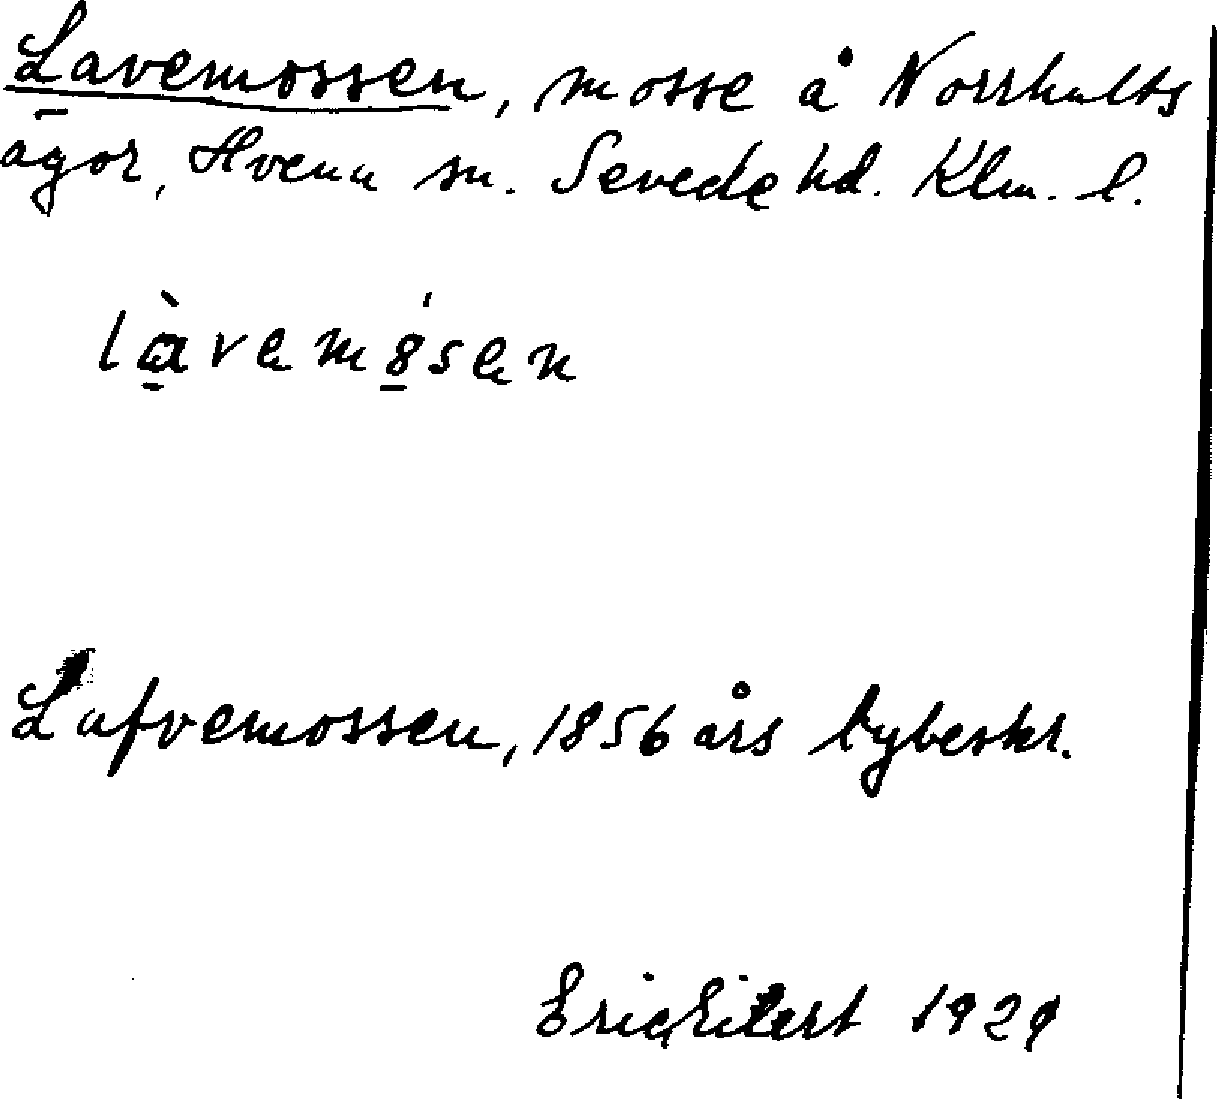 Lavemossen, mosse å Norrhults
ägor, Hvena sn. Sevede hd. Klm. l.
làvemósen
Lafvemossen, 1856 års lybeskr.
Eric Eilert 1929